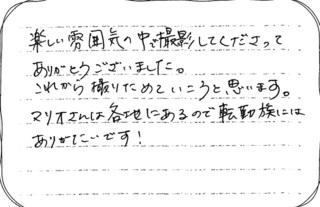 楽しい雰囲気の中で撮影してくださって
ありがとうございました。
これから撮りためていこうと思います。
マリオさんは各地にあるので転勤族には
ありがたいです!